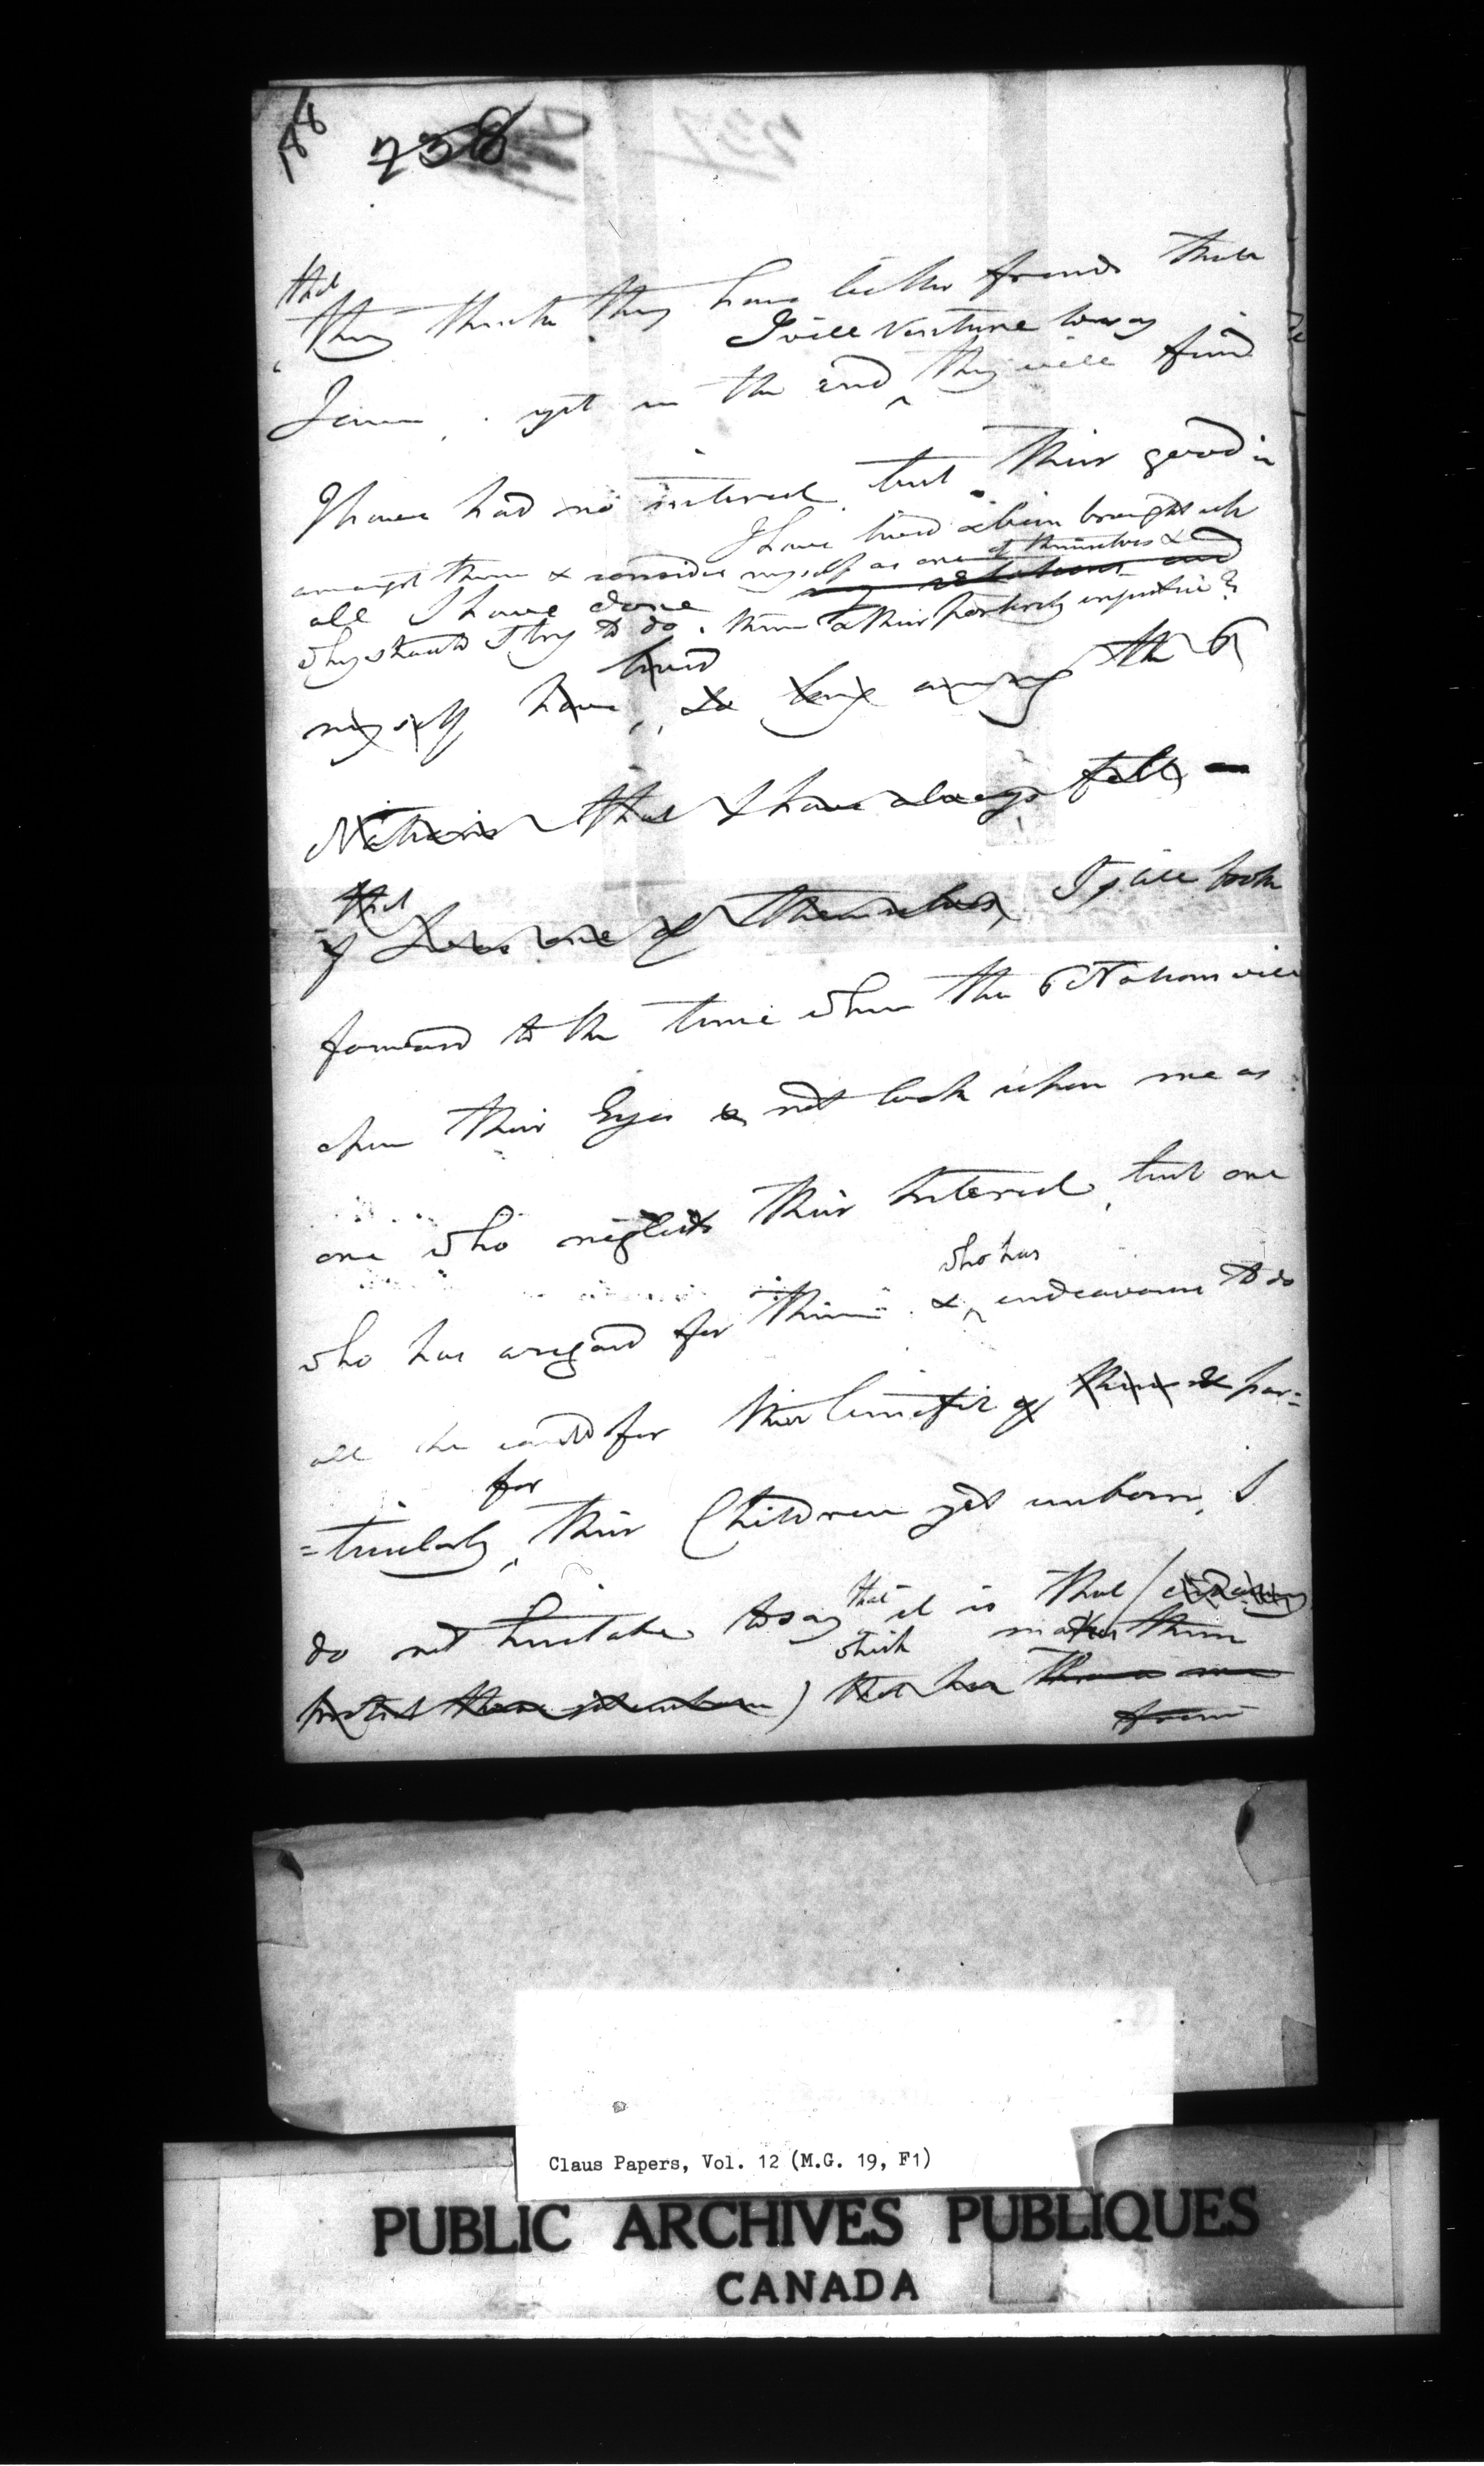 188
238
237
that
they think they have better friends than
I will venture to say
I am, yet in the end they will find
I have had no interest but their good in
I have lived & been brought up
amongst them & consider myself as one of themselves &
all I have done
why should I try to do them & their posterity injustice?
lived
myself have, so long among the 6
Nations that I have always felt
that
if I was one of themselves, I shall look
forward to the time when the 6 Nations will
open their Eyes & not look upon me as
one who neglects their Interest, but one
who has
who has a regard for them & endeavours to do
all he could for their benefit & par=
for
=ticularly, their Children yet unborn, I
that
do not hesitate to say it is that
which makes them
protect that has
from
Claus Papers, Vol. 12 (M.G. 19, F1)
PUBLIC ARCHIVES PUBLIQUES
CANADA